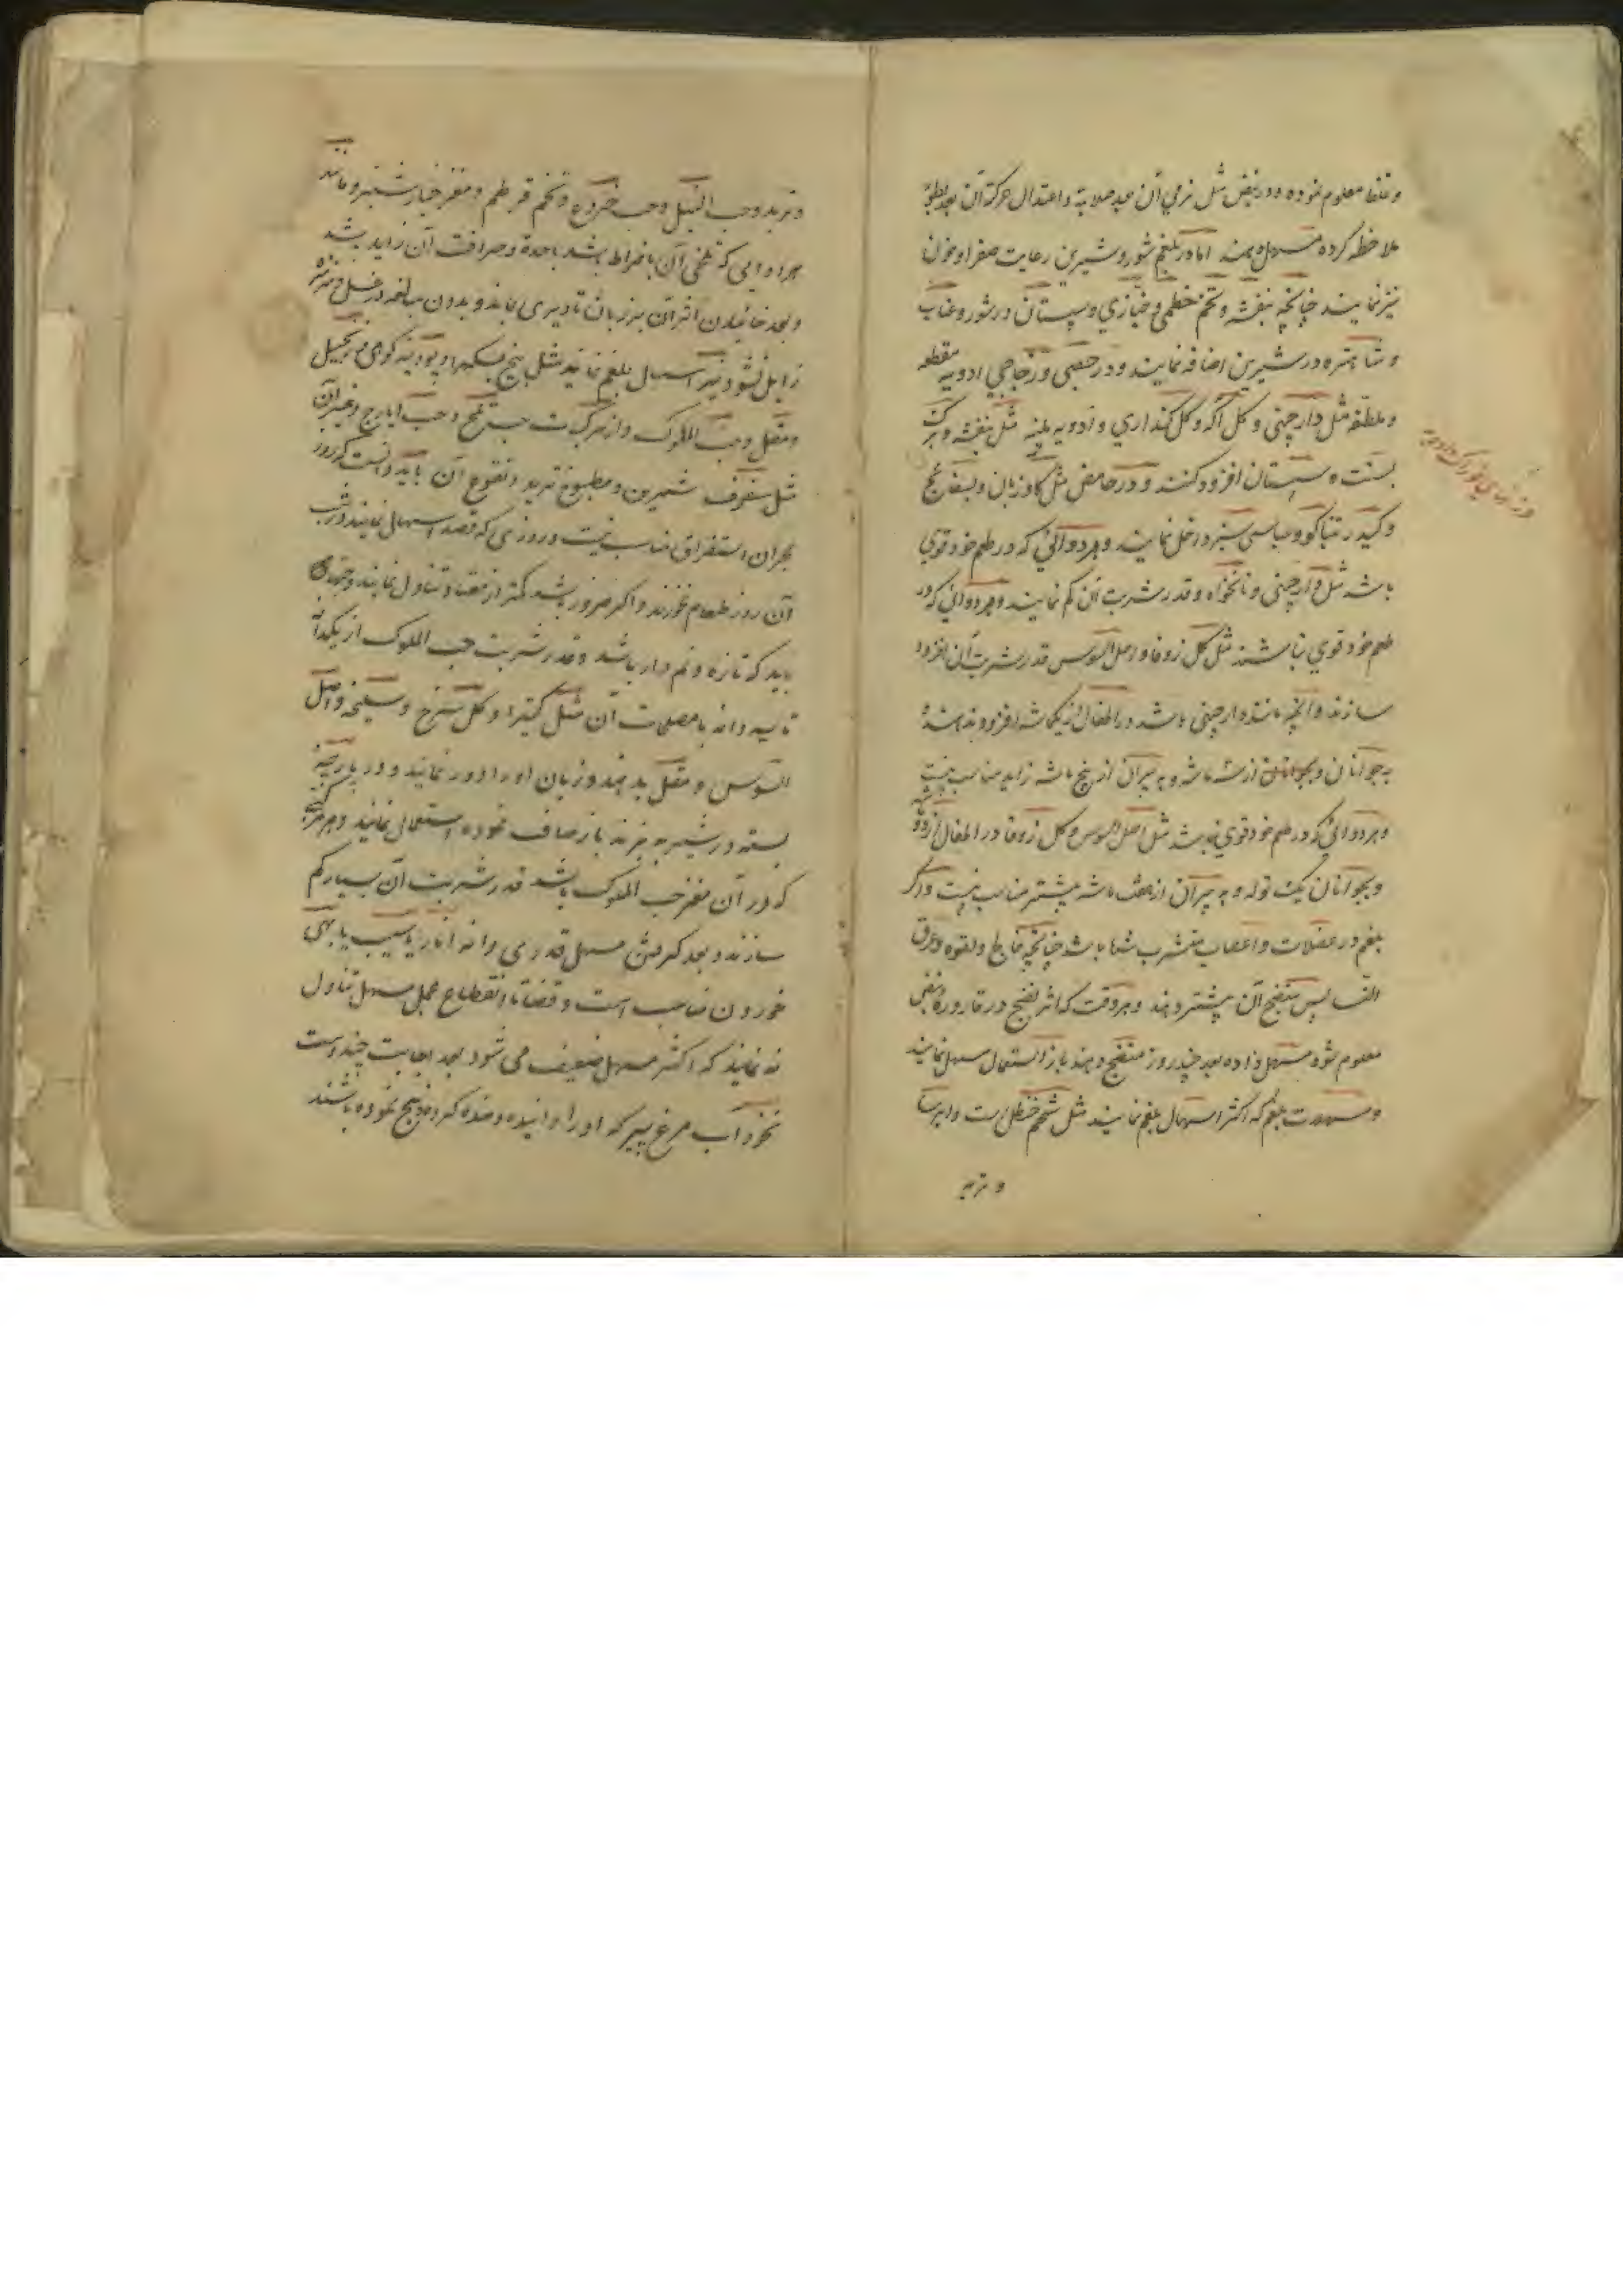 و غلظ معلوم نموده و در نبض مثل نرمی آن بعد صلابة و اعتدال حرکة آن بعد بطؤ
ملاحظه کرده مسهل دهند اما در بلغم شور و شیرین رعایت صفرا و خون
نیز نمایند چنانچه بنفشه و تخم خطمی و خبازی و سپستان در شور و عناب
و شاهتره در شیرین اضافه نمایند و در جصی و زجاجی ادویه مقطعه
و ملطفه مثل دارچینی و گل آکه و گل کنداری و ادویه ملینه مثل بنفشه و برگ
بسنت و سپستان افزود کنند و در حامض مثل گاوزبان و بسفایج
و تنباکو و سبز داخل نمایند و هر دوائی که در طعم خود قوی
باشد مثل دارچینی و نانخواه و قدر شربت آن کم نمایند و هر دوائی که در
طعم خود قوی نباشند مثل گل زوفا و اصل السوس قدر شربت آن افزود
سازند و آنچه مانند دارچینی باشد در اطفال از یکماشه افزود ندهند و
به جوانان از سه ماشه و به پیران از پنج ماشه زاید مناسب نیست
و هر دوائی که در طعم خود قوی نباشد مثل اصل السوس و گل زوفا در اطفال از دو ماشه
و بجوانان یک توله و به پیران از هفت ماشه بیشتر مناسب نیست و اگر
بلغم در عضلات و اعصاب متشرب باشد چنانچه فالج و لقوه و عرق
النسا پس منضج آن بیشتر دهند و هر وقت که اثر نضج در قاروره و نبض
معلوم شود مسهل داده بعد چند روز منضج دهند باز استعمال مسهل نمایند
و مسهلات بلغم که اکثر اسهال بلغم نمایند مثل شحم حنظل است و ایرسا
و تربد
و تربد و حب النیل و حب خروع و تخم قرطم و مغز خیارشنبر و مانند
هر دوایی که تلخی آن بافراط باشد یا حدة و حرافت آن زاید باشد
و بعد خائیدن اثر آن بر زبان تا دیری بماند و بدون مبالغه در غسل
زایل نشود نیز اسهال بلغم نماید مثل بیخ و پودینه کوهی و زنجبیل
و مقل و حب الملوک و از مرکبات حب و حب ایارج و غیر آن
مثل سفوف شیرین و مطبوخ تربد و نقوع آن باید دانست که روز
بحران استفراق مناسب نیست و روزی که قصد اسهال نمایند در شب
آن روز طعام نخورند و اگر ضرور باشد کمتر از معتاد تناول نمایند و
باید که تازه و نم دار باشد و قدر شربت حب الملوک از یکدانه
تا سه دانه با مصلحات آن مثل کتیرا و گل سرخ و سلیخه و اصل
السوس و مقل بدهند و زبان او را دور نمایند و در پارچه
بسته در شیر به پزند باز صاف نموده استعمال نمایند و هر مرکبی
که در آن مغز حب الملوک باشد قدر شربت آن بسیار کم
سازند و بعد گرفتن مسهل قدری دانه انار یا سیب یا بهی
خوردن مناسب است و تا انقطاع عمل مسهل تناول
نه نمایند که اکثر مسهل ضعیف می شود بعد اجابت چند دست
نخود آب مرغ پیر که او را دوانیده و مانده کرده ذبح نموده باشند